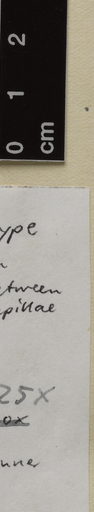 0 1 2
cm
ype
n
etween
pillae
25X
ox
nner